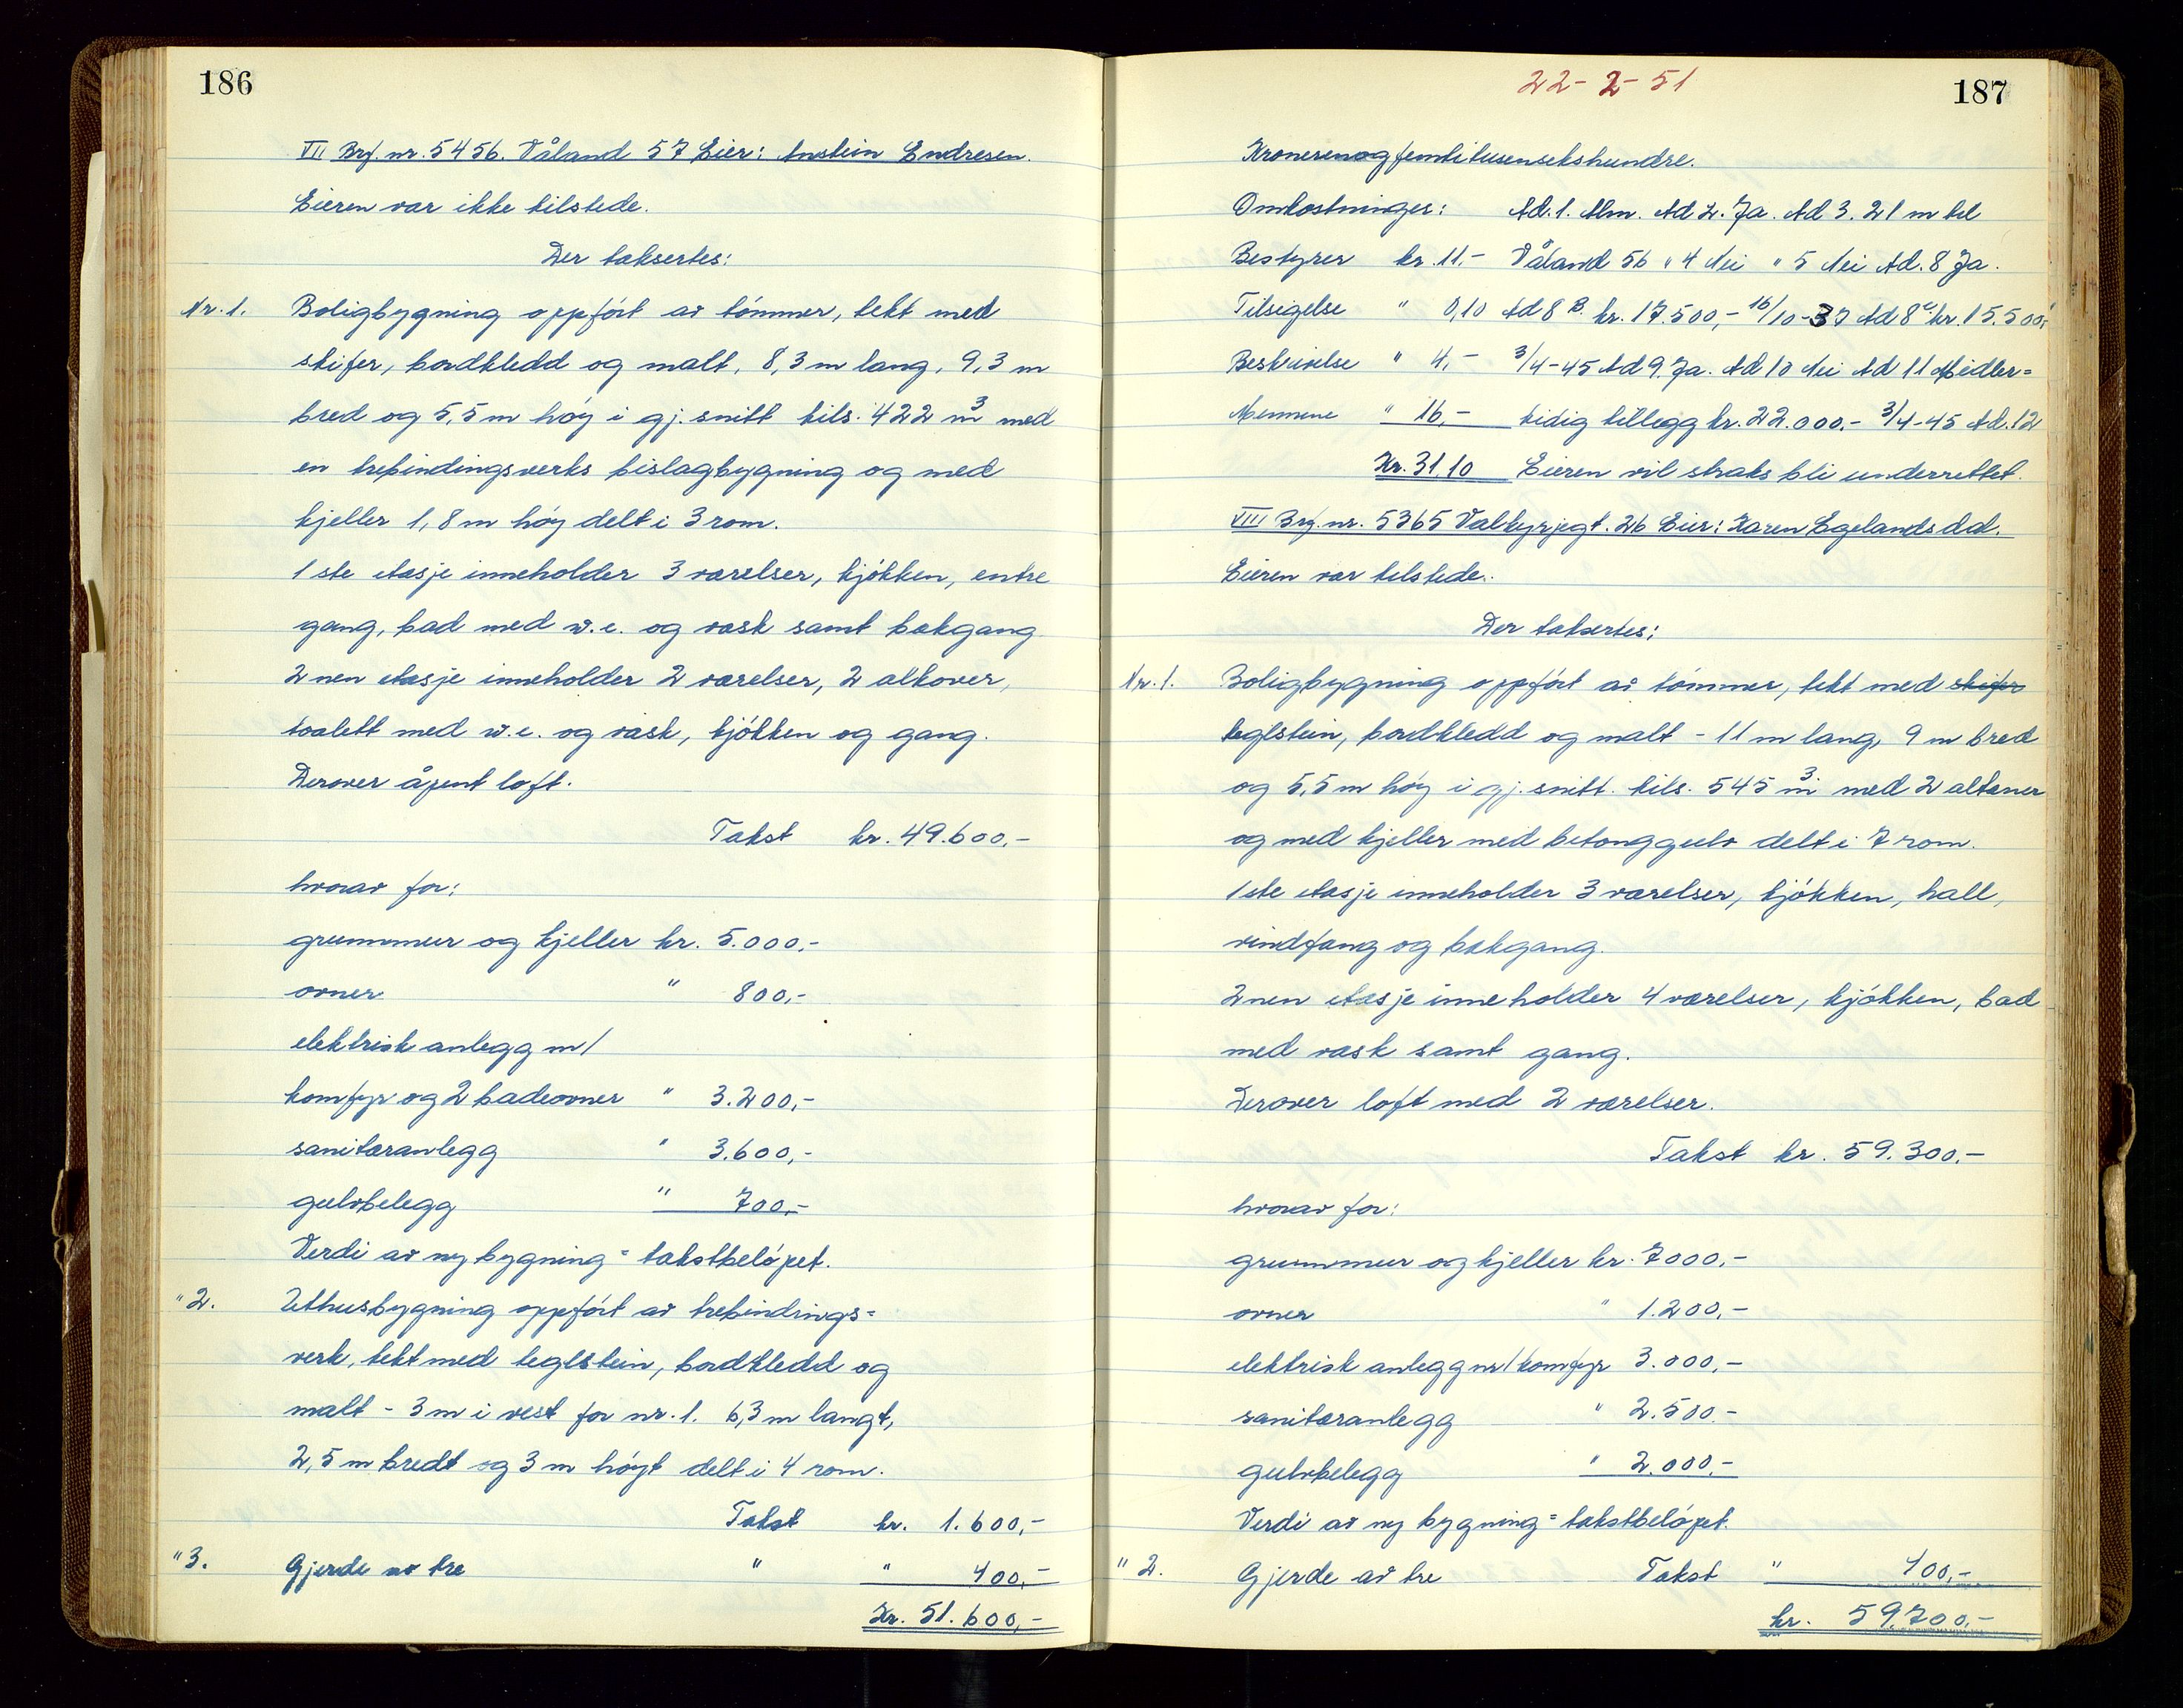 186
VII Brf. nr. 5456. Våland 57 Eier: Anstein Endresen.
Eieren var ikke tilstede.
Der taksertes:
Nr. 1. Boligbygning oppført av tømmer, tekt med
skifer, bordkledd og malt, 8,3 m lang, 9,3 m
bred og 5,5 m høy i gj. snitt tils. 422 m³ med
en trebindingsverks bislagbygning og med
kjeller 1,8 m høy delt i 3 rom.
1 ste etasje inneholder 3 værelser, kjøkken, entre
gang, bad med w.c. og vask samt bakgang
2 nen etasje inneholder 2 værelser, 2 alkover,
toalett med w.c. og vask, kjøkken og gang.
Derover åpent loft.
Takst kr. 49.600,-
hvorav for:
grunnmur og kjeller kr. 5.000,-
ovner " 800,-
elektrisk anlegg m/
komfyr og 2 badeovner " 3.200,-
sanitæranlegg " 3.600,-
gulvbelegg " 700,-
Verdi av ny bygning = takstbeløpet.
" 2. Uthusbygning oppført av trebindings=
verk, tekt med teglstein, bordkledd og
malt - 3 m i vest for nr. 1. 6,3 m langt,
2,5 m bredt og 3 m høyt delt i 4 rom.
Takst kr. 1.600,-
" 3. Gjerde av tre " " 400,-
Kr. 51.600,-
22-2-51
187
Kronerenogfemtitusensekshundre.
Omkostninger: Ad. 1. Alm. Ad 2. Ja. Ad 3. 21 m til
Bestyrer kr. 11.- Våland 56 " 4 Nei " 5 Nei Ad. 8 Ja.
Tilsigelse " 0,10 Ad 8 B. kr. 17.500,- 16/10-37 Ad 8 c kr. 15.500,-
Beskrivelse " 4,- 3/4-45 Ad 9. Ja. Ad 10 Nei Ad 11 Midler=
Mennene " 16,- tidig tillegg kr. 22.000.- 3/4-45 Ad. 12
Kr. 31.10 Eieren vil straks bli underrettet.
VIII Brf. nr. 5365 Valkyrjegt. 26 Eier: Karen Egelandsdal.
Eieren var tilstede.
Der taksertes:
Nr. 1. Boligbygning oppført av tømmer, tekt med skifer
teglstein, bordkledd og malt - 11 m lang, 9 m bred
og 5,5 m høy i gj. snitt. tils. 545 m³ med 2 altaner
og med kjeller med betonggulv delt i 7 rom.
1 ste etasje inneholder 3 værelser, kjøkken, hall,
vindfang og bakgang.
2 nen etasje inneholder 4 værelser, kjøkken, bad
med vask samt gang.
Derover loft med 2 værelser.
Takst kr. 59.300,-
hvorav for:
grunnmur og kjeller kr. 7000,-
ovner " 1.200,-
elektrisk anlegg m/ komfyr 3.000,-
sanitæranlegg " 2.500.-
gulvbelegg " 2.000.-
Verdi av ny bygning = takstbeløpet.
" 2. Gjerde av tre Takst " 400,-
kr. 59.700,-